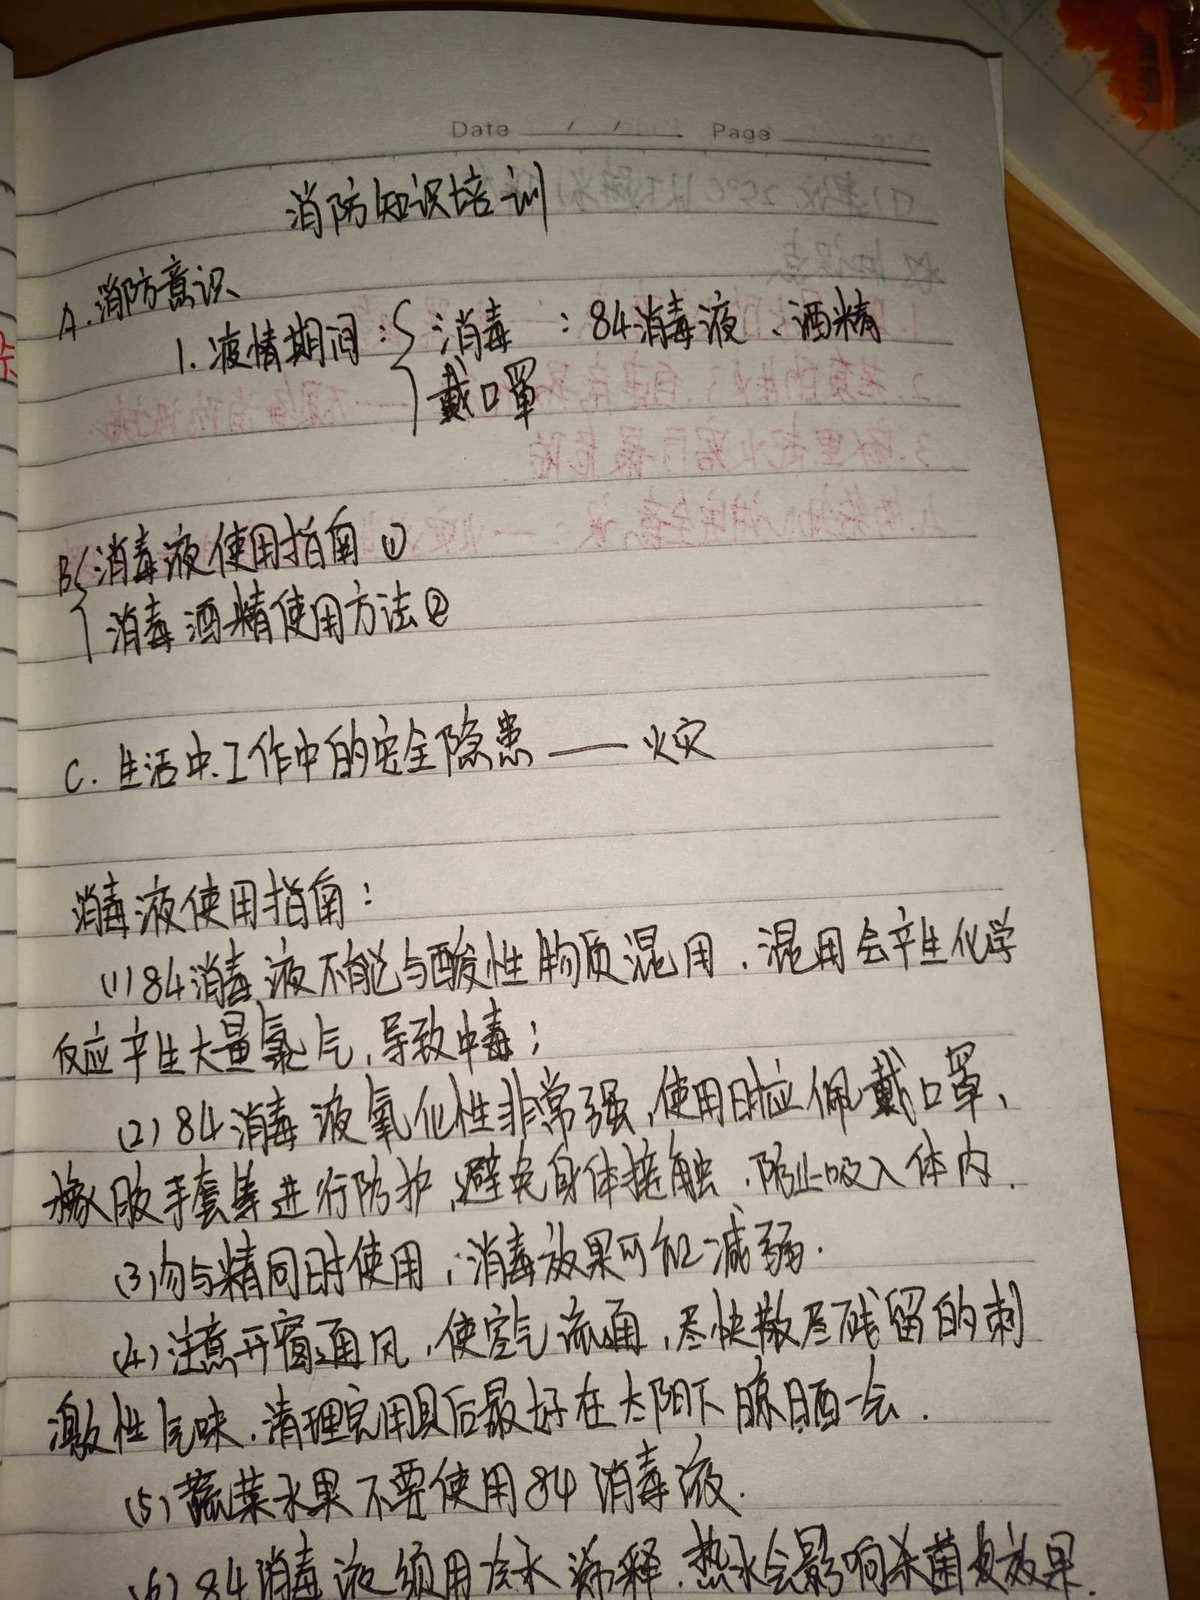 Date / / Page
消防知识培训
A.消防意识
1.疫情期间:{消毒:84消毒液、酒精
戴口罩
B{消毒液使用指南①
消毒酒精使用方法②
C.生活中、工作中的安全隐患——火灾
消毒液使用指南:
(1)84消毒液不能与酸性物质混用,混用会产生化学
反应产生大量氯气,导致中毒;
(2)84消毒液氧化性非常强,使用时应佩戴口罩、
橡胶手套等进行防护,避免身体接触,防止吸入体内.
(3)勿与精同时使用,消毒效果可能减弱.
(4)注意开窗通风,使空气流通,尽快散尽残留的刺
激性气味,清理完用具后最好在太阳下晾晒一会.
(5)蔬菜水果不要使用84消毒液.
(6)84消毒液须用冷水稀释,热水会影响杀菌效果.